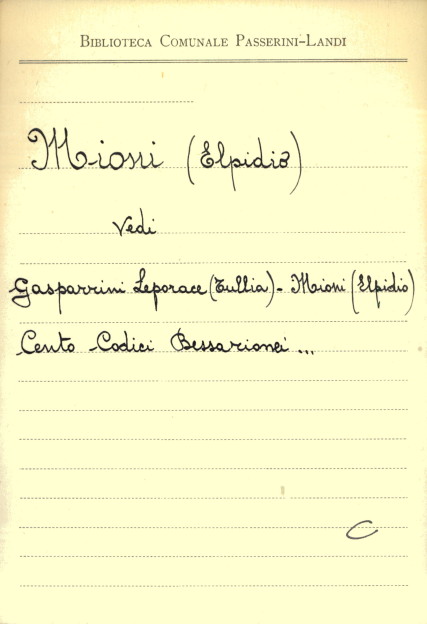 BIBLIOTECA COMUNALE PASSERINI-LANDI
Mioni (Elpidio)
Vedi
Gasparrini Leporace (Tullia) - Mioni (Elpidio)
Cento Codici Bessarionei ...
C